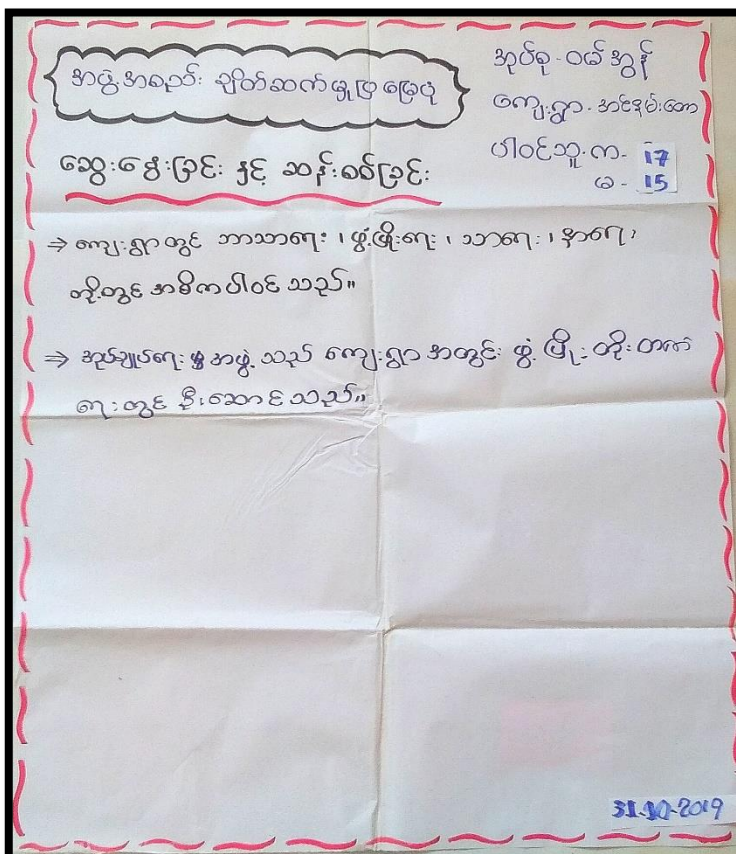 အဖွဲ့အစည်း ချိတ်ဆက်မှုပြ မြေပုံ
အုပ်စု - ဝယ်အွန်
ကျေးရွာ - အင်နမ်းတော
ပါဝင်သူ ကျ - 17
မ - 15
ဆွေးနွေးခြင်း နှင့် ဆန်းစစ်ခြင်း
⇒ ကျေးရွာတွင် ဘာသာရေး ၊ ဖွံ့ဖြိုးရေး ၊ သာရေး ၊ နာရေး
တို့တွင် အဓိကပါဝင်သည်။
⇒ အုပ်ချုပ်ရေး အဖွဲ့သည် ကျေးရွာအတွင်း ဖွံ့ဖြိုး တိုးတက်
ရေးတွင် ဦးဆောင်သည်။
31-10-2019